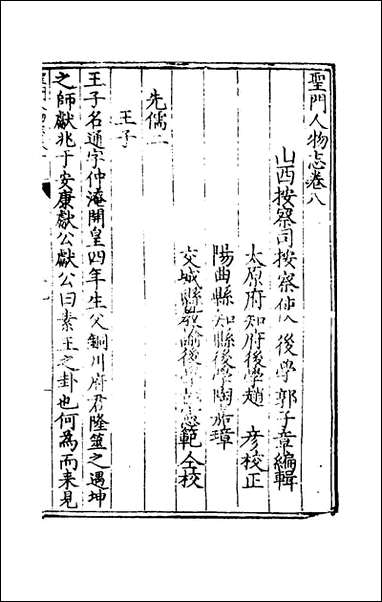 聖門人物志卷八
山西按察司按察使後學郭子章編輯
太原府知府後學趙彥校正
陽曲縣知縣後學陶嘉璋
交城縣教諭後學範仝校
先儒二
王子
王子名通字仲淹開皇四年生父銅川府君隆筮之遇坤
之師獻兆于安康獻公獻公曰素王之卦也何為而来見